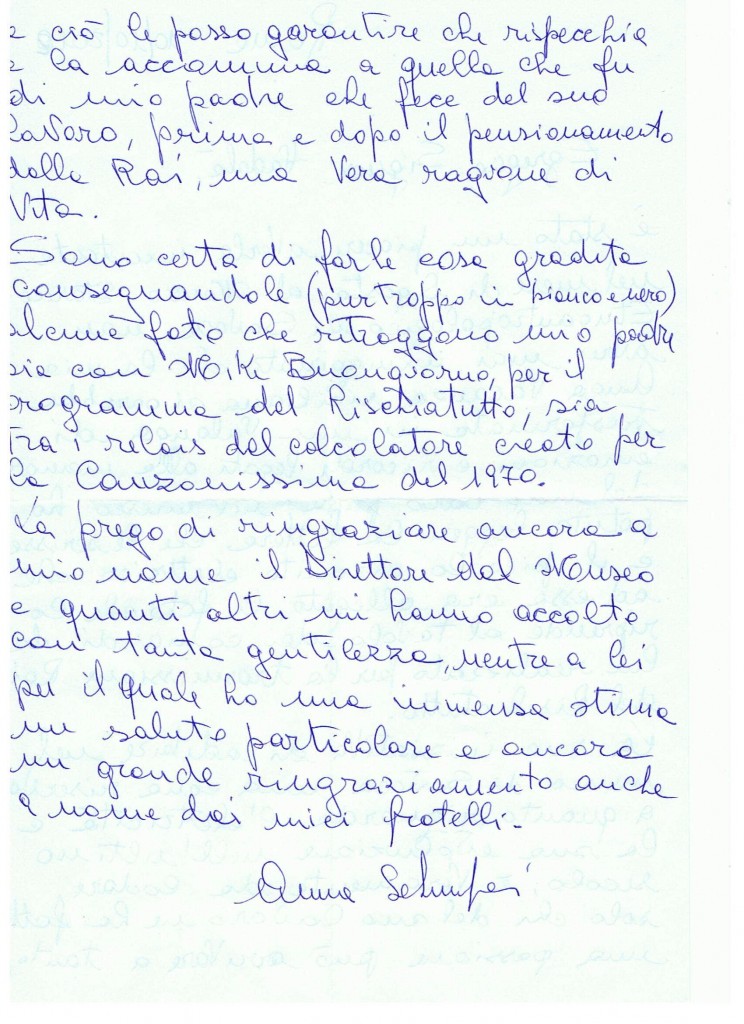 e ciò le posso garantire che rispecchia
e la accomuna a quella che fu
di mio padre che fece del suo
lavoro, prima e dopo il pensionamento
dalla Rai, una Vera ragione di
Vita.
Sono certa di farle cosa gradita
consegnandole (purtroppo in bianco e nero)
alcune foto che ritraggono mio padre
sia con Mike Buongiorno per il
programma del Rischiatutto, sia
tra i relais del calcolatore creato per
la Canzonissima del 1970.
La prego di ringraziare ancora a
mio nome il Direttore del Museo
e quanti altri mi hanno accolto
con tanta gentilezza, mentre a lei
per il quale ho una immensa stima
un saluto particolare e ancora
un grande ringraziamento anche
a nome dei miei fratelli.
Anna